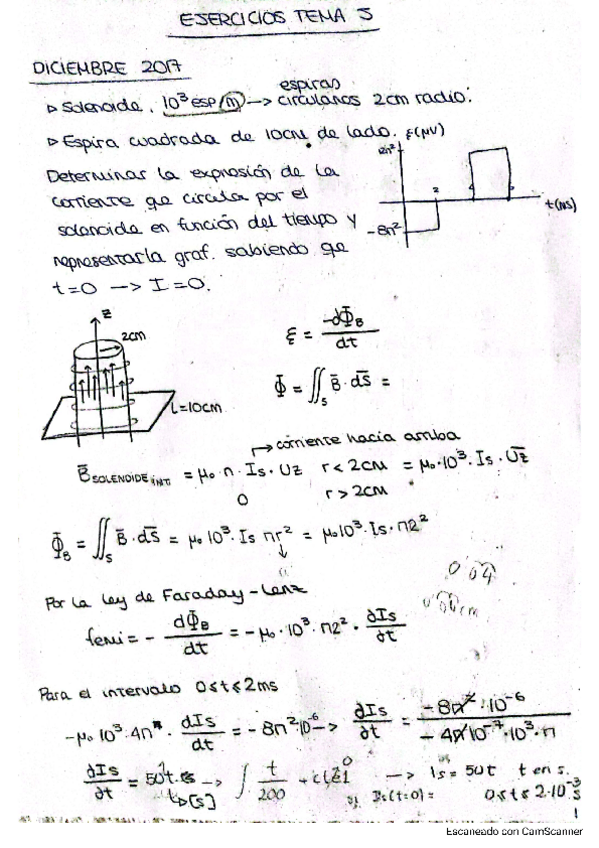 EJERCICIOS TEMA 5
DICIEMBRE 2017
▷ Solenoide, 10³ esp/m → espiras circulares 2cm radio.
▷ Espira cuadrada de 10cm de lado. ε(μV)
Determinar la expresión de la
corriente qe circula por el
solenoide en función del tiempo y
representarla graf. sabiendo qe
t=0 → I=0.
2
t(ms)
-8π²
z
2cm
L=10cm
ξ = -dΦB/dt
Φ = ∬s B̄·dS̄ =
↱ corriente hacia arriba
B̄SOLENOIDE INT = μ₀·n·Is·Uz r<2cm = μ₀·10³·Is·Ūz
0 r>2cm
ΦB = ∬s B̄·dS̄ = μ₀ 10³·Is πr² = μ₀10³·Is·π2²
Por la ley de Faraday-Lenz
femi = - dΦB/dt = -μ₀·10³·π2²·∂Is/∂t
Para el intervalo 0≤t≤2ms
-μ₀10³·4π·dIs/dt = -8π²·10⁻⁶ → ∂Is/∂t = -8π²·10⁻⁶ / -4π10⁻⁷·10³·π
∂Is/∂t = 50t → ∫ t/200 → Is = 50t t en s.
t▷[s] Is(t=0)= 0≤t≤2·10⁻³s
1
Escaneado con CamScanner